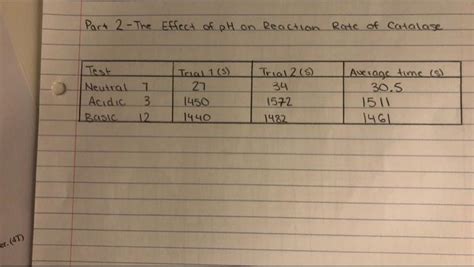 Part 2 - The Effect of pH on Reaction Rate of Catalase
Test Trial 1 (s) Trial 2 (s) Average time (s)
Neutral 7 27 34 30.5
Acidic 3 1450 1572 1511
Basic 12 1440 1482 1461
er. (dT)